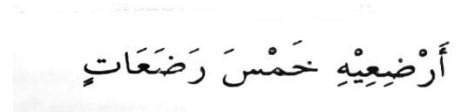 أَرْضِعِيْهِ خَمْسَ رَضَعَاتٍ